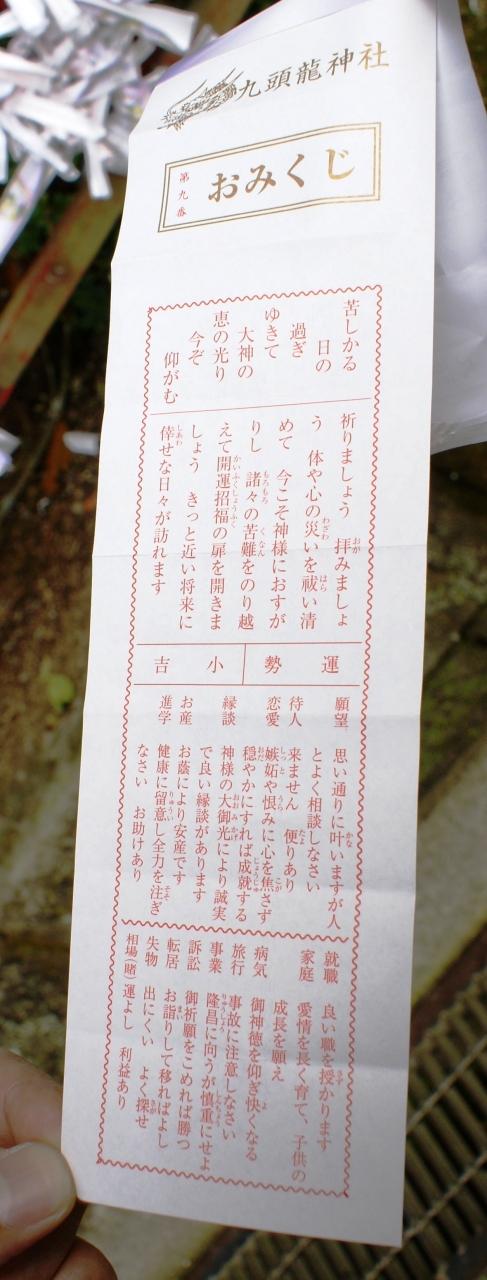 九頭龍神社
おみくじ
第九番
苦しかる
日の
過ぎ
ゆきて
大神の
恵の光り
今ぞ
仰がむ
祈りましょう 拝みましょ
う 体や心の災いを祓い清
めて 今こそ神様におすが
りし 諸々の苦難をのり越
えて開運招福の扉を開きま
しょう きっと近い将来に
倖せな日々が訪れます
運勢 小吉
願望 思い通りに叶いますが人
とよく相談しなさい
待人 来ません 便りあり
恋愛 嫉妬や恨みに心を焦さず
穏やかにすれば成就する
縁談 神様の大御光により誠実
で良い縁談があります
お産 お蔭により安産です
進学 健康に留意し全力を注ぎ
なさい お助けあり
就職 良い職を授かります
家庭 愛情を長く育て、子供の
成長を願え
病気 御神徳を仰ぎ快くなる
旅行 事故に注意しなさい
事業 隆昌に向うが慎重にせよ
訴訟 御祈願をこめれば勝つ
転居 お詣りして移ればよし
失物 出にくい よく探せ
相場(賭) 運よし 利益あり